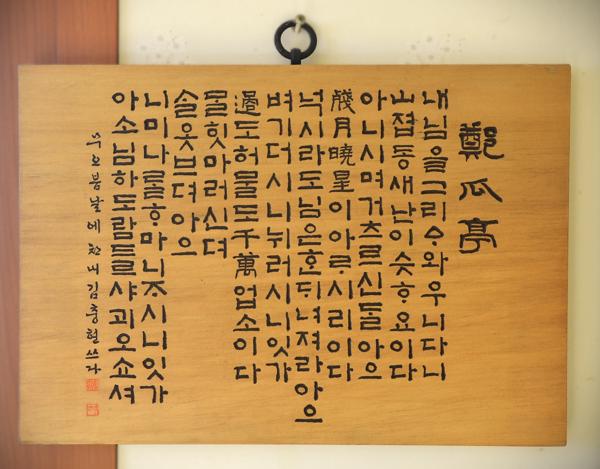 鄭瓜亭
내님을그리ᅀᆞ와우니다니
山졉동새난이슷ᄒᆞ요이다
아니시며거츠르신ᄃᆞᆯ아으
殘月曉星이아ᄅᆞ시리이다
넉시라도님은ᄒᆞᆫᄃᆡ녀져라아으
벼기더시니뉘러시니잇가
過도허믈도千萬업소이다
ᄆᆞᆯ힛마러신뎌
ᄉᆞᆯ읏브뎌아으
니미나ᄅᆞᆯᄒᆞ마니ᄌᆞ시니잇가
아소님하도람들샤괴오쇼셔
무오봄날에 한내김충현쓰다